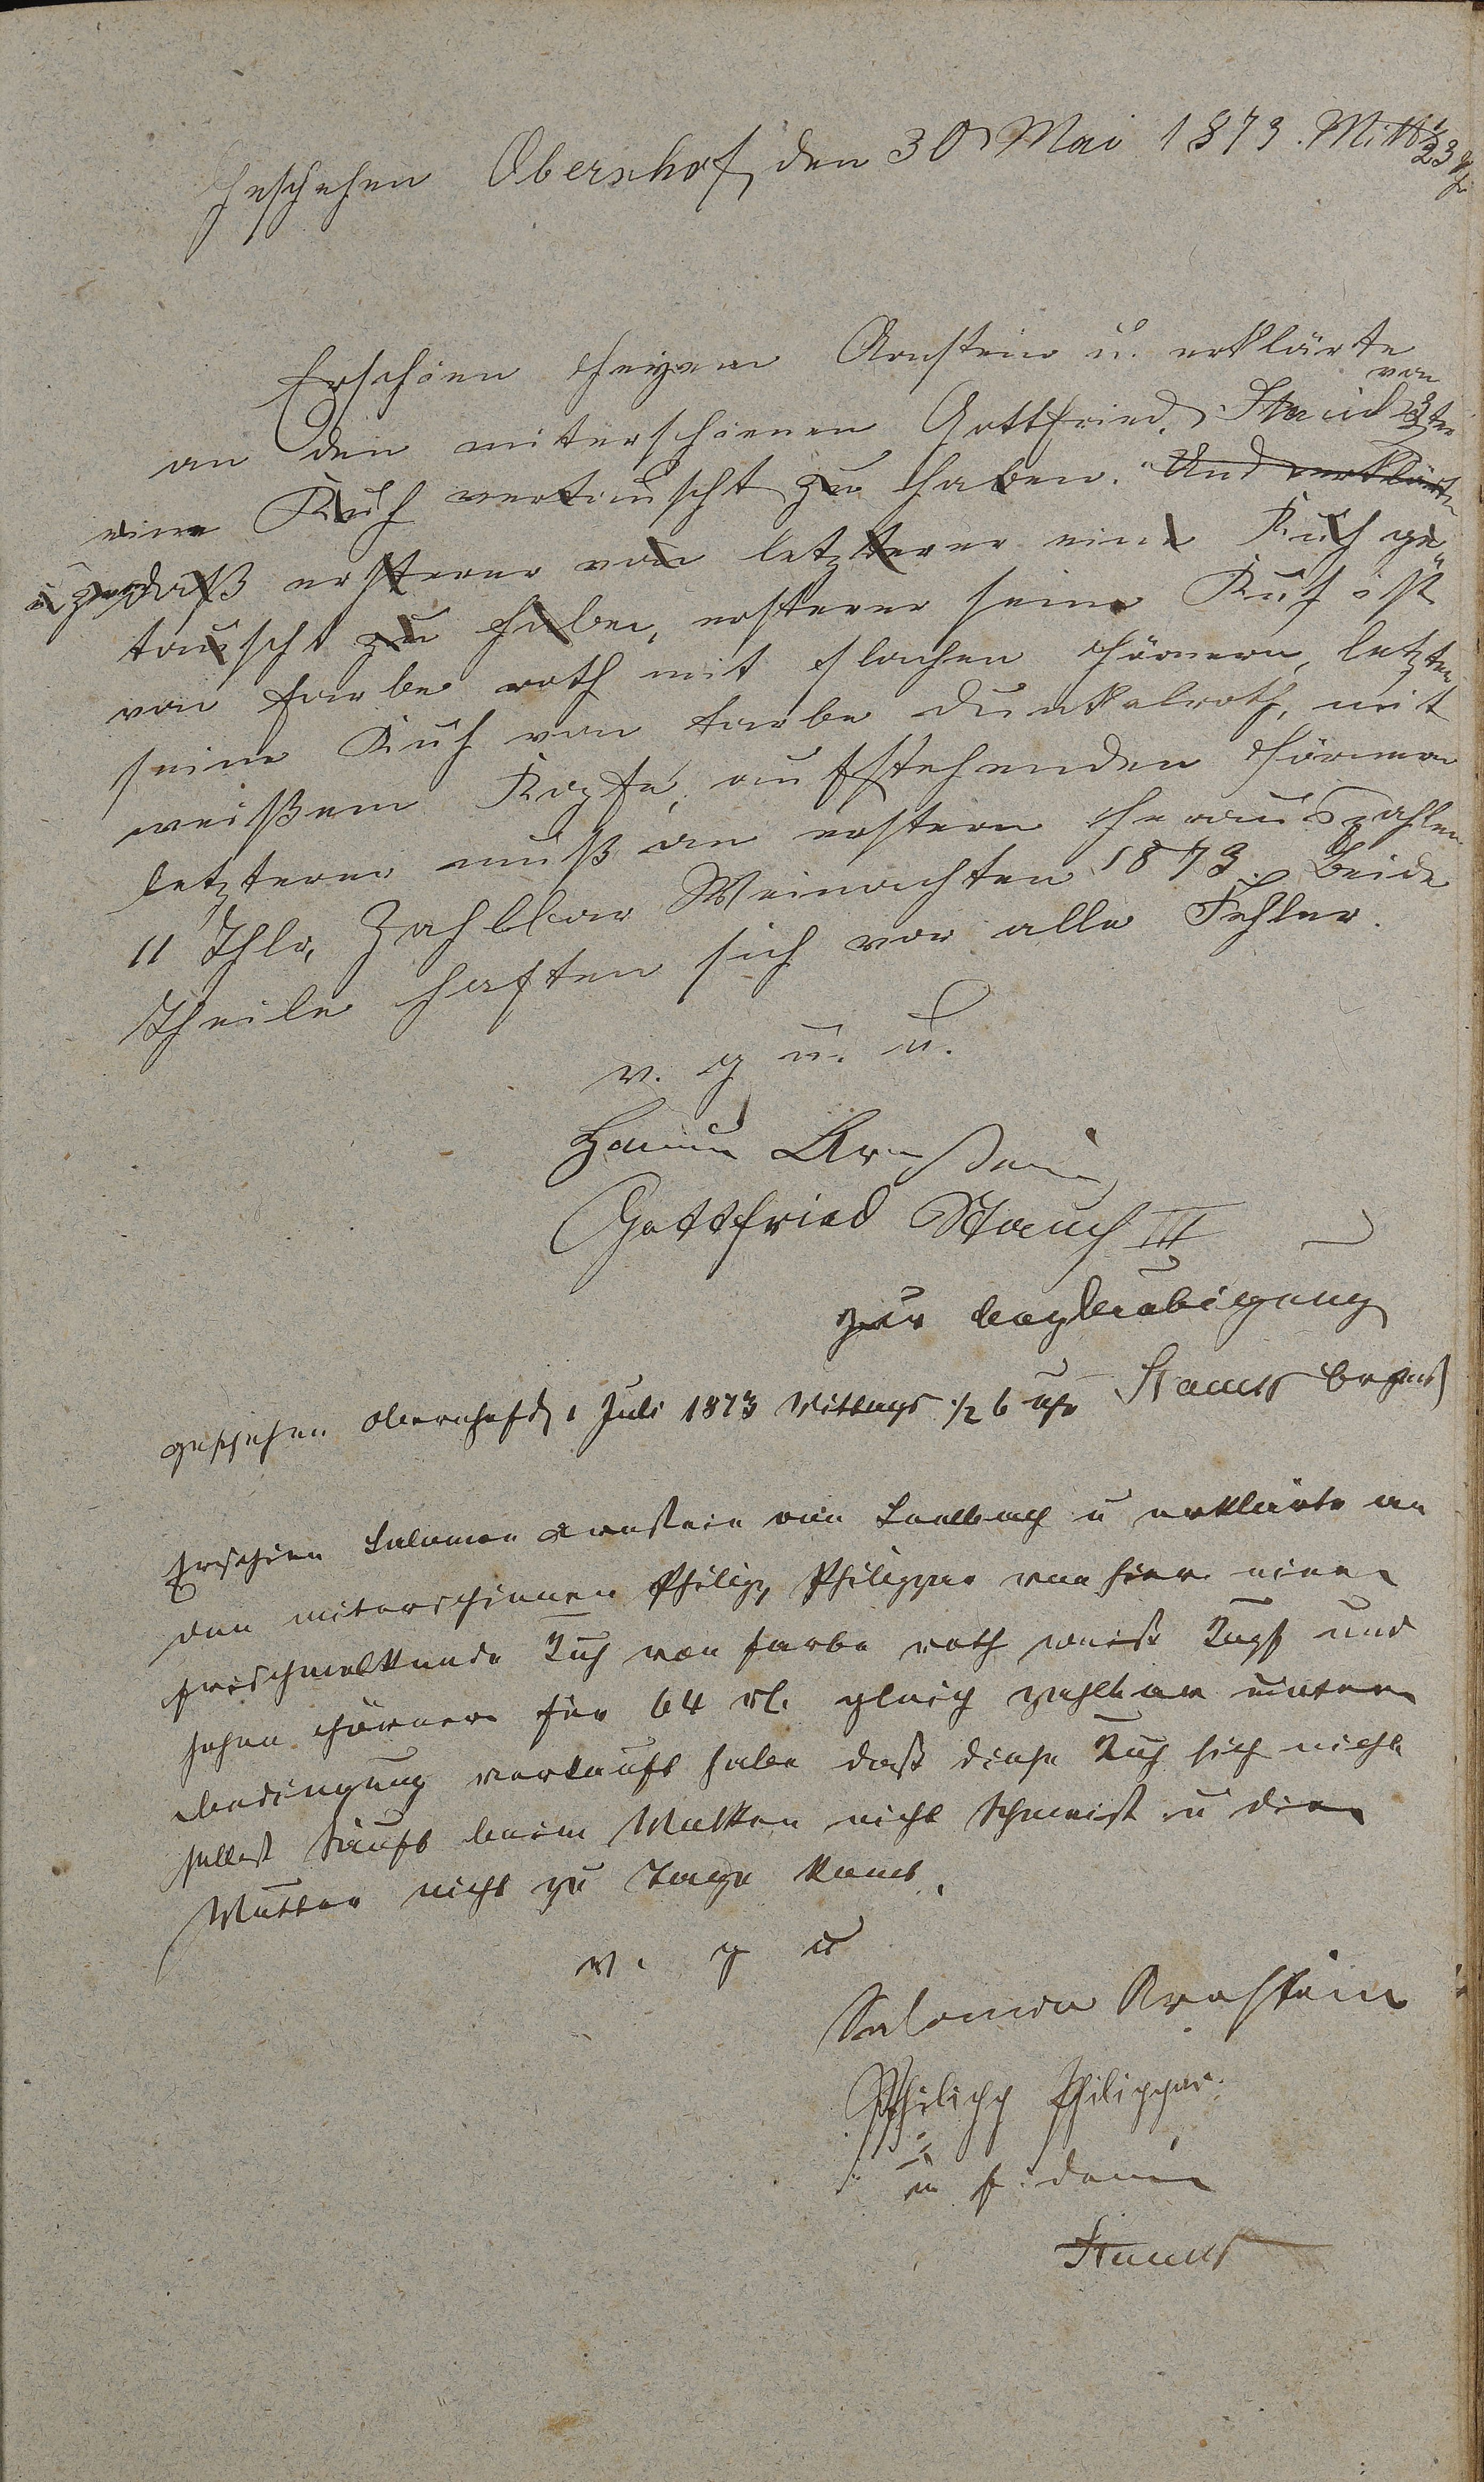 Geschehen Obernhof, den 30 Mai 1873. Mitt ½3 Uhr
Erschien Heyem Arnstein u. erklärte
an den miterschienen Gottfried Stauch 3ter von
eine Kuh vertauscht zu haben. Und erklärte
u zwar daß ersterer von letzterer eine Kuh ge
tauscht zu haben, ersterer seine Kuh ist
von Farbe roth mit flachen Hörnern, letzter
seine Kuh von Farbe dunkelroth, mit
weißem Kopfe, aufstehenden Hörner
letzterer muß an erstern herauszahlen
11 Thlr, Zahlbar Weinachten 1873. Beide
Theile haften sich vor alle Fehler.
v. g u. u.
Arnstein
Gottfried Stauch III
zur beglaubigung
geschehen Obernhof d 1 Juli 1873 Mittags ½ 6 Uhr
Erschien Salomon Arnstein von u erklärte an
den miterschienen Philipp Philippar von hier eine
frischmelkende Kuh von farbe roth weiß Kopf und
hohen Hörner für 64 rl. gleich zahlbar unter
bedingung verkauft habe daß diese Kuh sich nicht
selbst Säuft beim Melken nicht Schmeist u die
Mutter nicht zu Tage komt.
v. g u
Salomon Arnstein
Philipp Philippar
in fidem